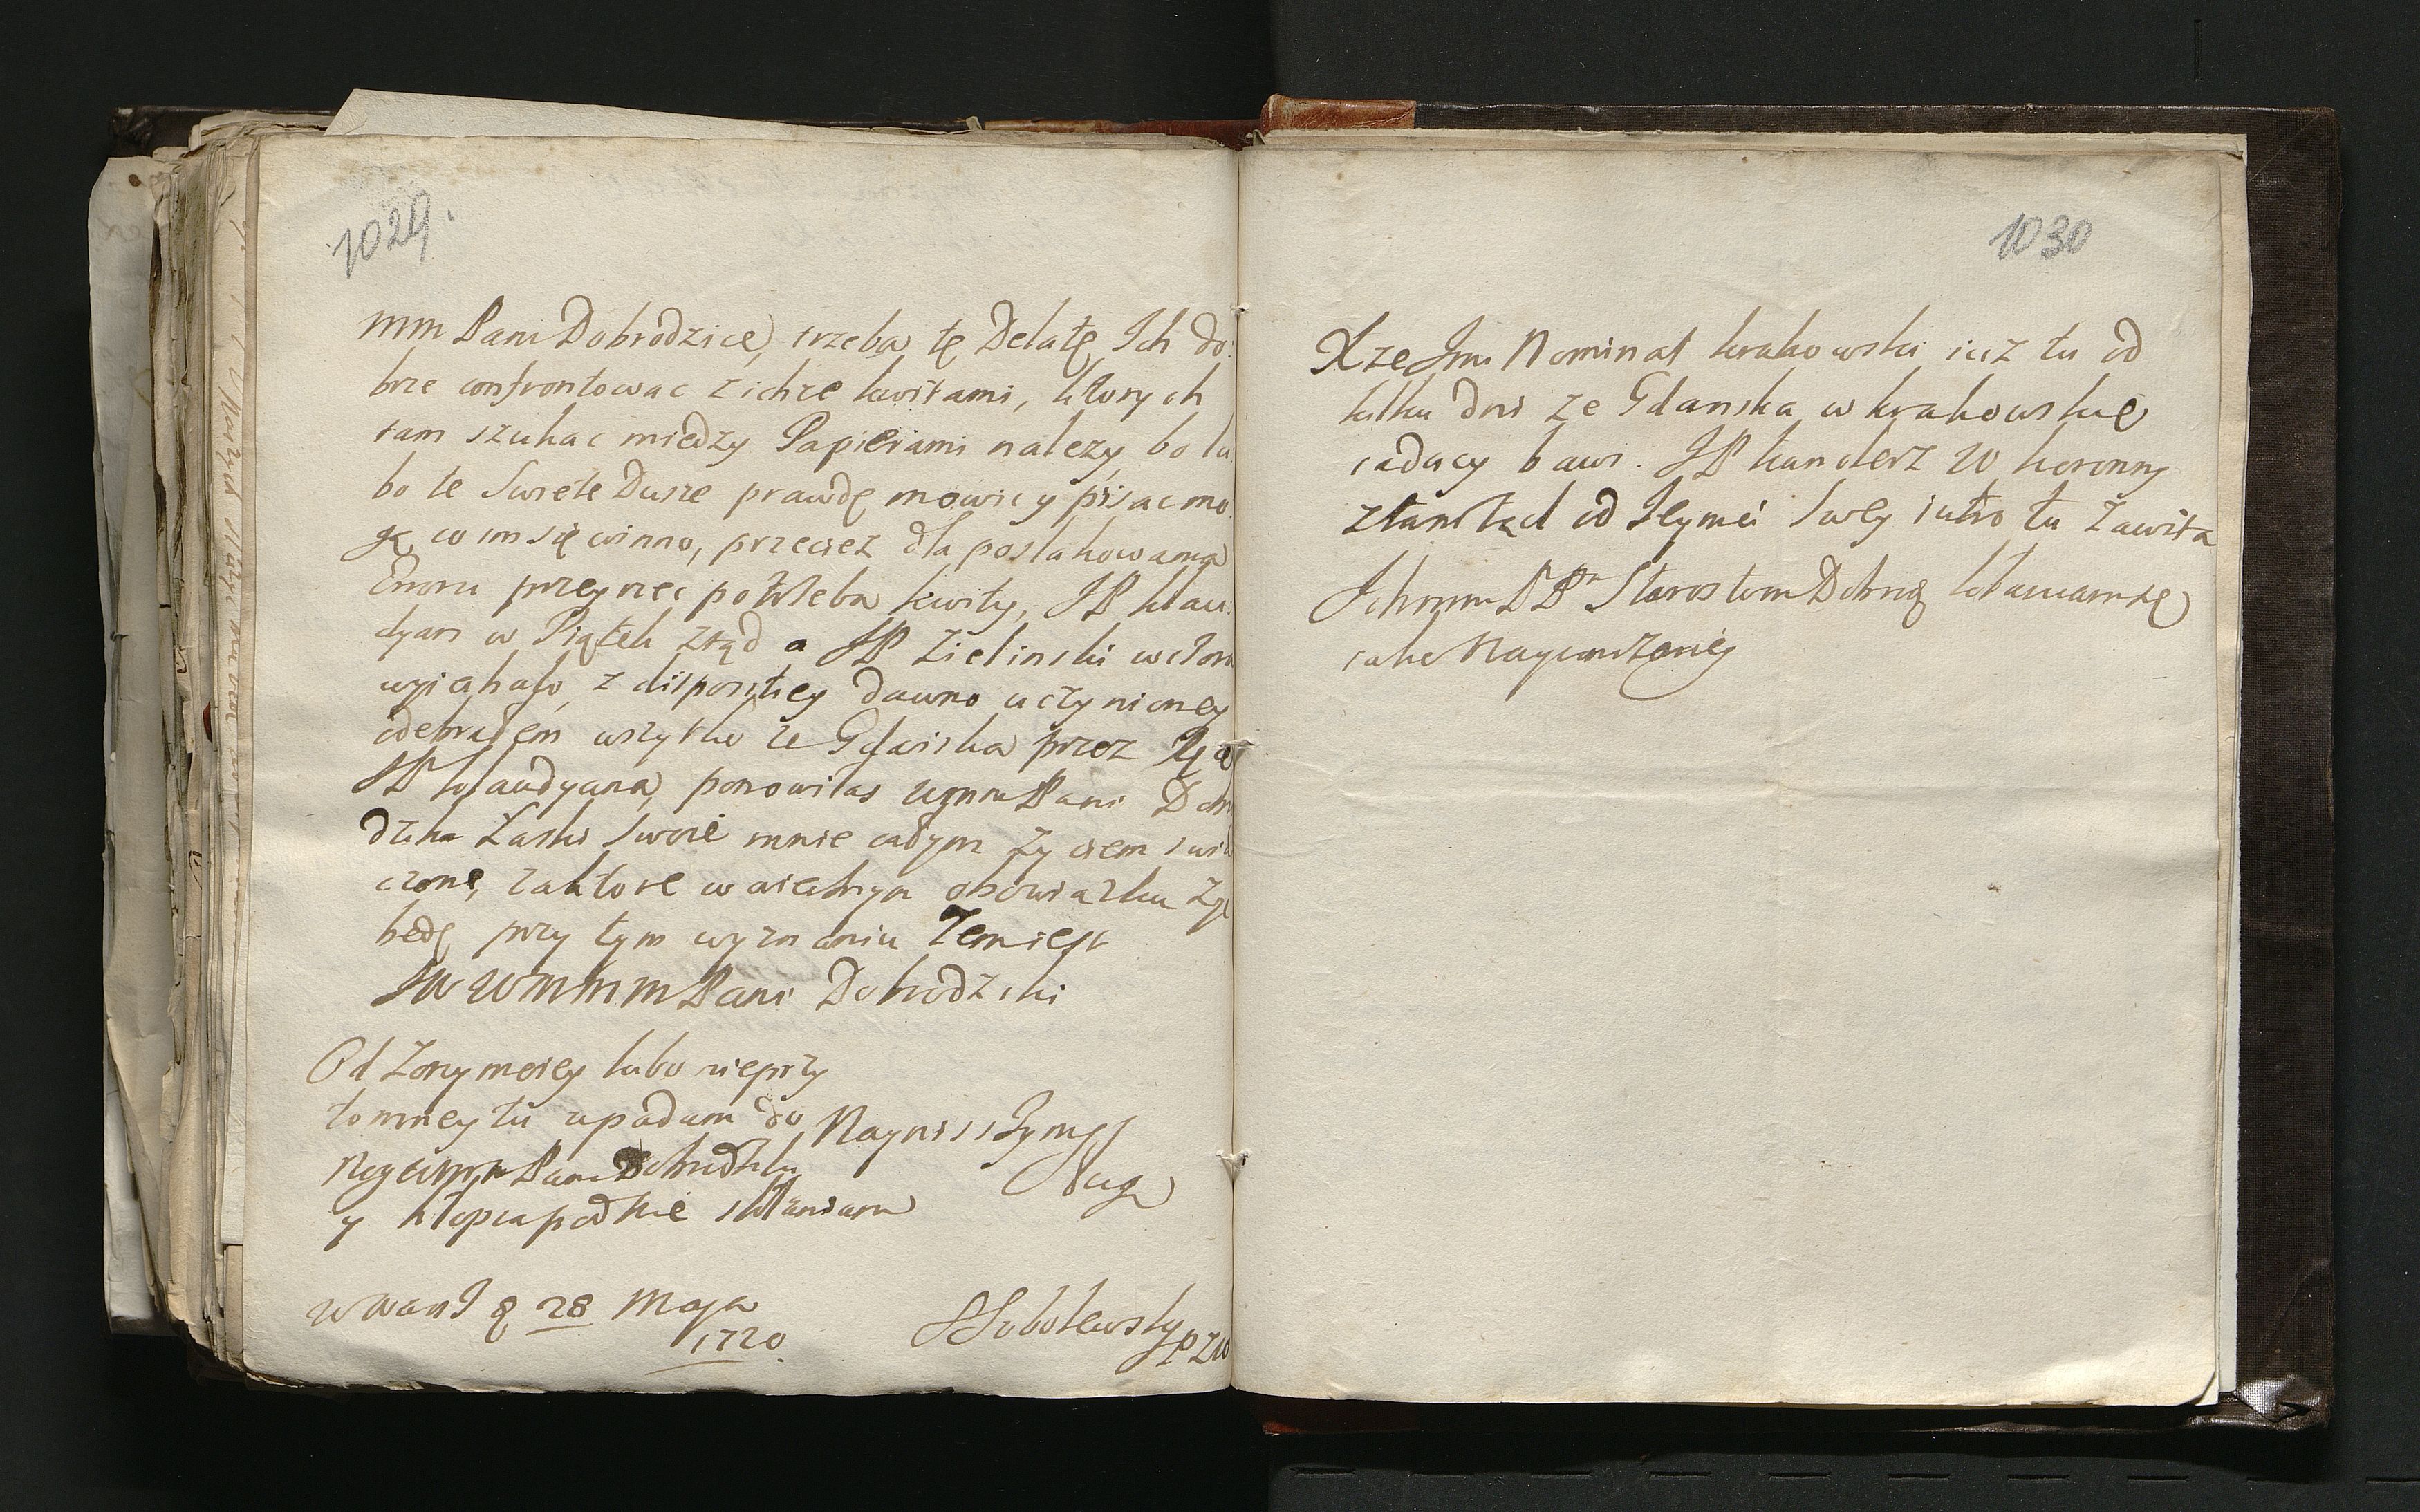 1029.
mm Pani Dobrodzice, trzeba tę Delatę Ich do:
brze confrontowac z ichze kwitami, ktorych
tam szukac miedzy Papierami nalezy, bo lu:
bo te Swiete Dusze prawdę mowic y pisac mo:
gą, co im się winno, przeciez dla poslakowania
Erroru przeyrzec potrzeba kwity, JP Klau:
dyan w Piątek ztąd a JP Zielinski wczora
wyiechało, z disposityey dawno uczynioney
odebrałem wszytko ze Gdanska przez
JP Klaudyana, ponowiłas Pani Dobro
dzika Łaski swoie mnie całym zyciem
czone, za ktore w wiecznym obowiązku
będę przy tym wyznaniu Zem iest
JW WMMM Pani Dobrodziki
Od Zony moiey lubo nieprzy
tomney tu upadam do
Pani Dobrodziki
y chłopca pod nie skłaniam
Nayniższymy
Sługą
w Warsz 28 Maja
1720.
SSobolewsky
PZW
1030
Xze Jmc Nominat krakowski iuz tu od
kilku dni ze Gdanska w krakowskie
iadący bawi. JP kanclerz W koronny
ztamtąd od Jeymci swey iutro tu zawita
Ichmm PP Starostom Dobrą kłaniam się
iako Nayunizeniey